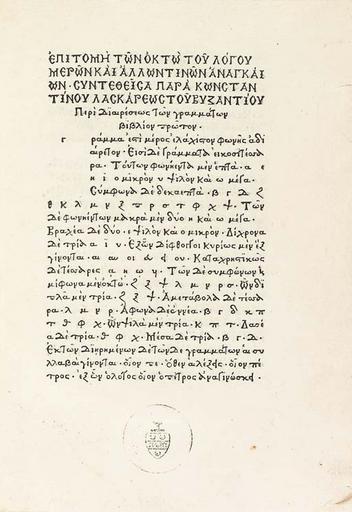 ἘΠΙΤΟΜῊ ΤΩ͂Ν ὈΚΤῺ ΤΟΥ͂ ΛΌΓΟΥ
ΜΕΡΩ͂Ν ΚΑῚ ἌΛΛΩΝ ΤΙΝΩ͂Ν ἈΝΑΓΚΑΊ
ΩΝ · ΣΥΝΤΕΘΕΙ͂ΣΑ ΠΑΡᾺ ΚΩΝΣΤΑΝ
ΤΊΝΟΥ ΛΑΣΚΆΡΕΩΣ ΤΟΥ͂ ΒΥΖΑΝΤΊΟΥ
Περὶ Διαιρέσεως τῶν γραμμάτων
βιβλίον πρῶτον.
Γ ράμμα ἐστὶ μέρος ἐλάχιστον φωνῆς ἀδι
αίρετον · Εἰσὶ δὲ γράμματα εἰκοσιτέσσα
ρα. Τούτων φωνήεντα μὲν ἑπτά. α ε
η ι ο μικρὸν υ ψιλὸν καὶ ω μέγα.
Σύμφωνα δὲ δεκαεπτά. β γ δ ζ
θ κ λ μ ν ξ π ρ σ τ φ χ ψ. Τῶν
δὲ φωνηέντων μακρὰ μὲν δύο η καὶ ω μέγα.
Βραχέα δὲ δύο. ε ψιλὸν καὶ ο μικρόν. Δίχρονα
δὲ τρία α ι υ. Ἐξ ὧν δίφθογγοι κυρίως μὲν ἓξ
γίνονται. αι αυ οι ει ευ ου. Καταχρηστικῶς
δὲ τέσσαρες ᾳ ῃ ῳ υι. Τῶν δὲ συμφώνων ἡ
μίφωνα μὲν ὀκτώ. ζ ξ ψ λ μ ν ρ σ. Ὧν δι
πλᾶ μὲν τρία. ζ ξ ψ. Ἀμετάβολα δὲ τέσσα
ρα. λ μ ν ρ. Ἄφωνα δὲ ἐννέα. β γ δ κ π
τ θ φ χ. Ὧν ψιλὰ μὲν τρία. κ π τ. Δασέ
α δὲ τρία. θ φ χ. Μέσα δὲ τρία. β γ δ.
Ἐκ τῶν διῃρημένων δὲ τῶνδε γραμμάτων αἱ συλ
λαβαὶ γίνονται. οἷον πε. ὅθεν αἱ λέξεις. οἷον πέ
τρος. ἐξ ὧν ὁ λόγος οἷον ὁ πέτρος ἀναγινώσκει.